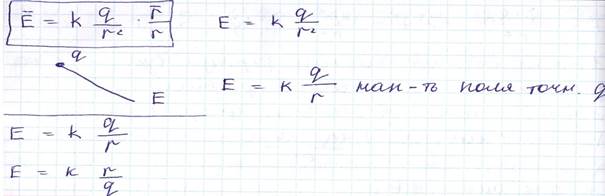 Ē = k q/r² · r̄/r
E = k q/r²
q
E
E = k q/r нап-ть поля точк. q
E = k q/r
E = k r/q